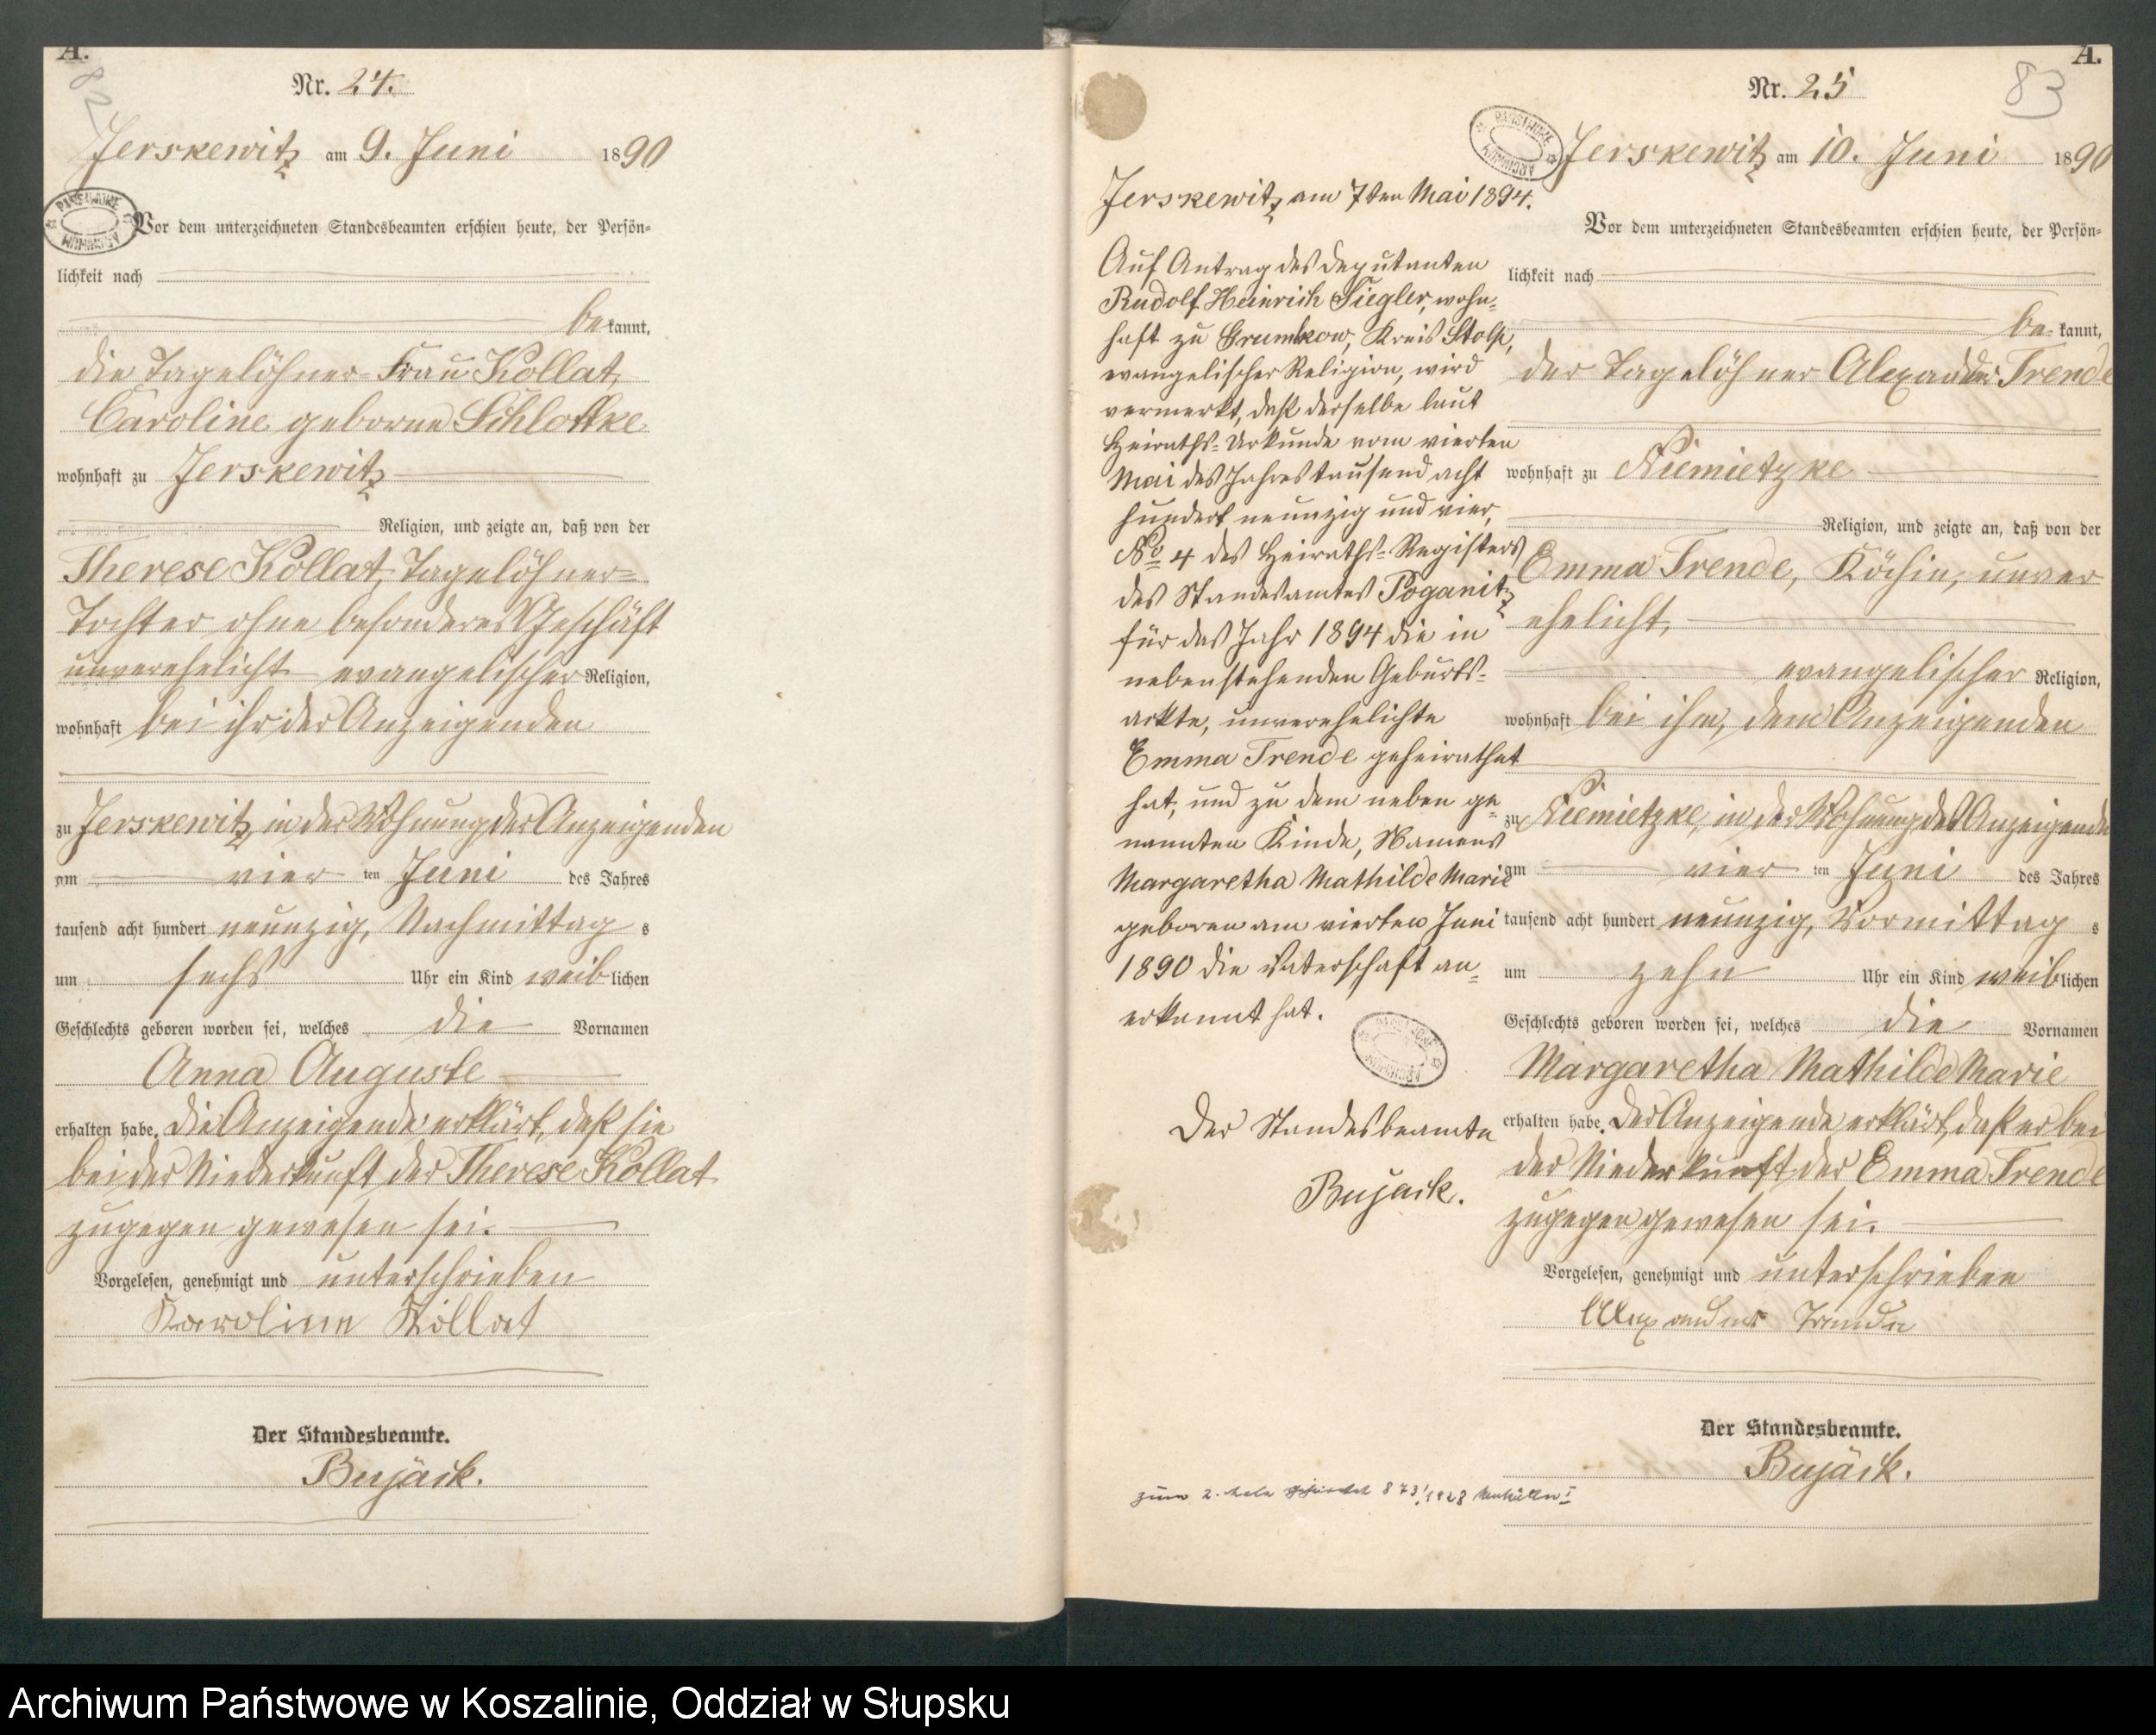 A.
82
Nr. 24.
Jerskewitz am 9. Juni 1890
Vor dem unterzeichneten Standesbeamten erschien heute, der Persön-
lichkeit nach
be kannt,
die Tagelöhner-Frau Kollat,
Caroline geborne Schlottke
wohnhaft zu Jerskewitz
Religion, und zeigte an, daß von der
Therese Kollat, Tagelöhner-
Tochter ohne besonderes Geschäft
unverehelicht evangelischer Religion,
wohnhaft bei ihr der Anzeigenden
zu Jerskewitz, in der Wohnung der Anzeigenden
am vier ten Juni des Jahres
tausend acht hundert neunzig, Nachmittag s
um sechs Uhr ein Kind weib lichen
Geschlechts geboren worden sei, welches die Vornamen
Anna Auguste
erhalten habe. Die Anzeigende erklärt, daß sie
bei der Niederkunft der Therese Kollat
zugegen gewesen sei.
Vorgelesen, genehmigt und unterschrieben
Karoline Kollat
Der Standesbeamte.
Bujack.
A.
83
Nr. 25
Jerskewitz am 10. Juni 1890
Vor dem unterzeichneten Standesbeamten erschien heute, der Persön-
lichkeit nach
be kannt,
der Tagelöhner Alexander Trende
wohnhaft zu Niemietzke
Religion, und zeigte an, daß von der
Emma Trende, Köchin, unver
ehelicht,
evangelischer Religion,
wohnhaft bei ihm, dem Anzeigenden
zu Niemietzke, in der Wohnung des Anzeigenden
am vier ten Juni des Jahres
tausend acht hundert neunzig, Vormittag s
um zehn Uhr ein Kind weib lichen
Geschlechts geboren worden sei, welches die Vornamen
Margaretha Mathilde Marie
erhalten habe. Der Anzeigende erklärt, daß er bei
der Niederkunft der Emma Trende
zugegen gewesen sei.
Vorgelesen, genehmigt und unterschrieben
Alexander Trende
Der Standesbeamte.
Bujack.
Jerskewitz am 7ten Mai 1894.
Auf Antrag des Deputanten
Rudolf Heinrich Siegler, wohn-
haft zu Grumkow, Kreis Stolp,
evangelischer Religion, wird
vermerkt, daß derselbe laut
Heiraths-Urkunde vom vierten
Mai des Jahres tausend acht
hundert neunzig und vier,
No 4 des Heiraths-Registers
des Standesamtes Poganitz
für das Jahr 1894 die in
nebenstehenden Geburts-
ackte, unverehelichte
Emma Trende geheirathet
hat, und zu dem neben ge-
nannten Kinde, Namens
Margaretha Mathilde Marie
geboren am vierten Juni
1890 die Vaterschaft an-
erkannt hat.
Der Standesbeamte
Bujack.
zum 2. 873/1928 Neukölln I
Archiwum Państwowe w Koszalinie, Oddział w Słupsku